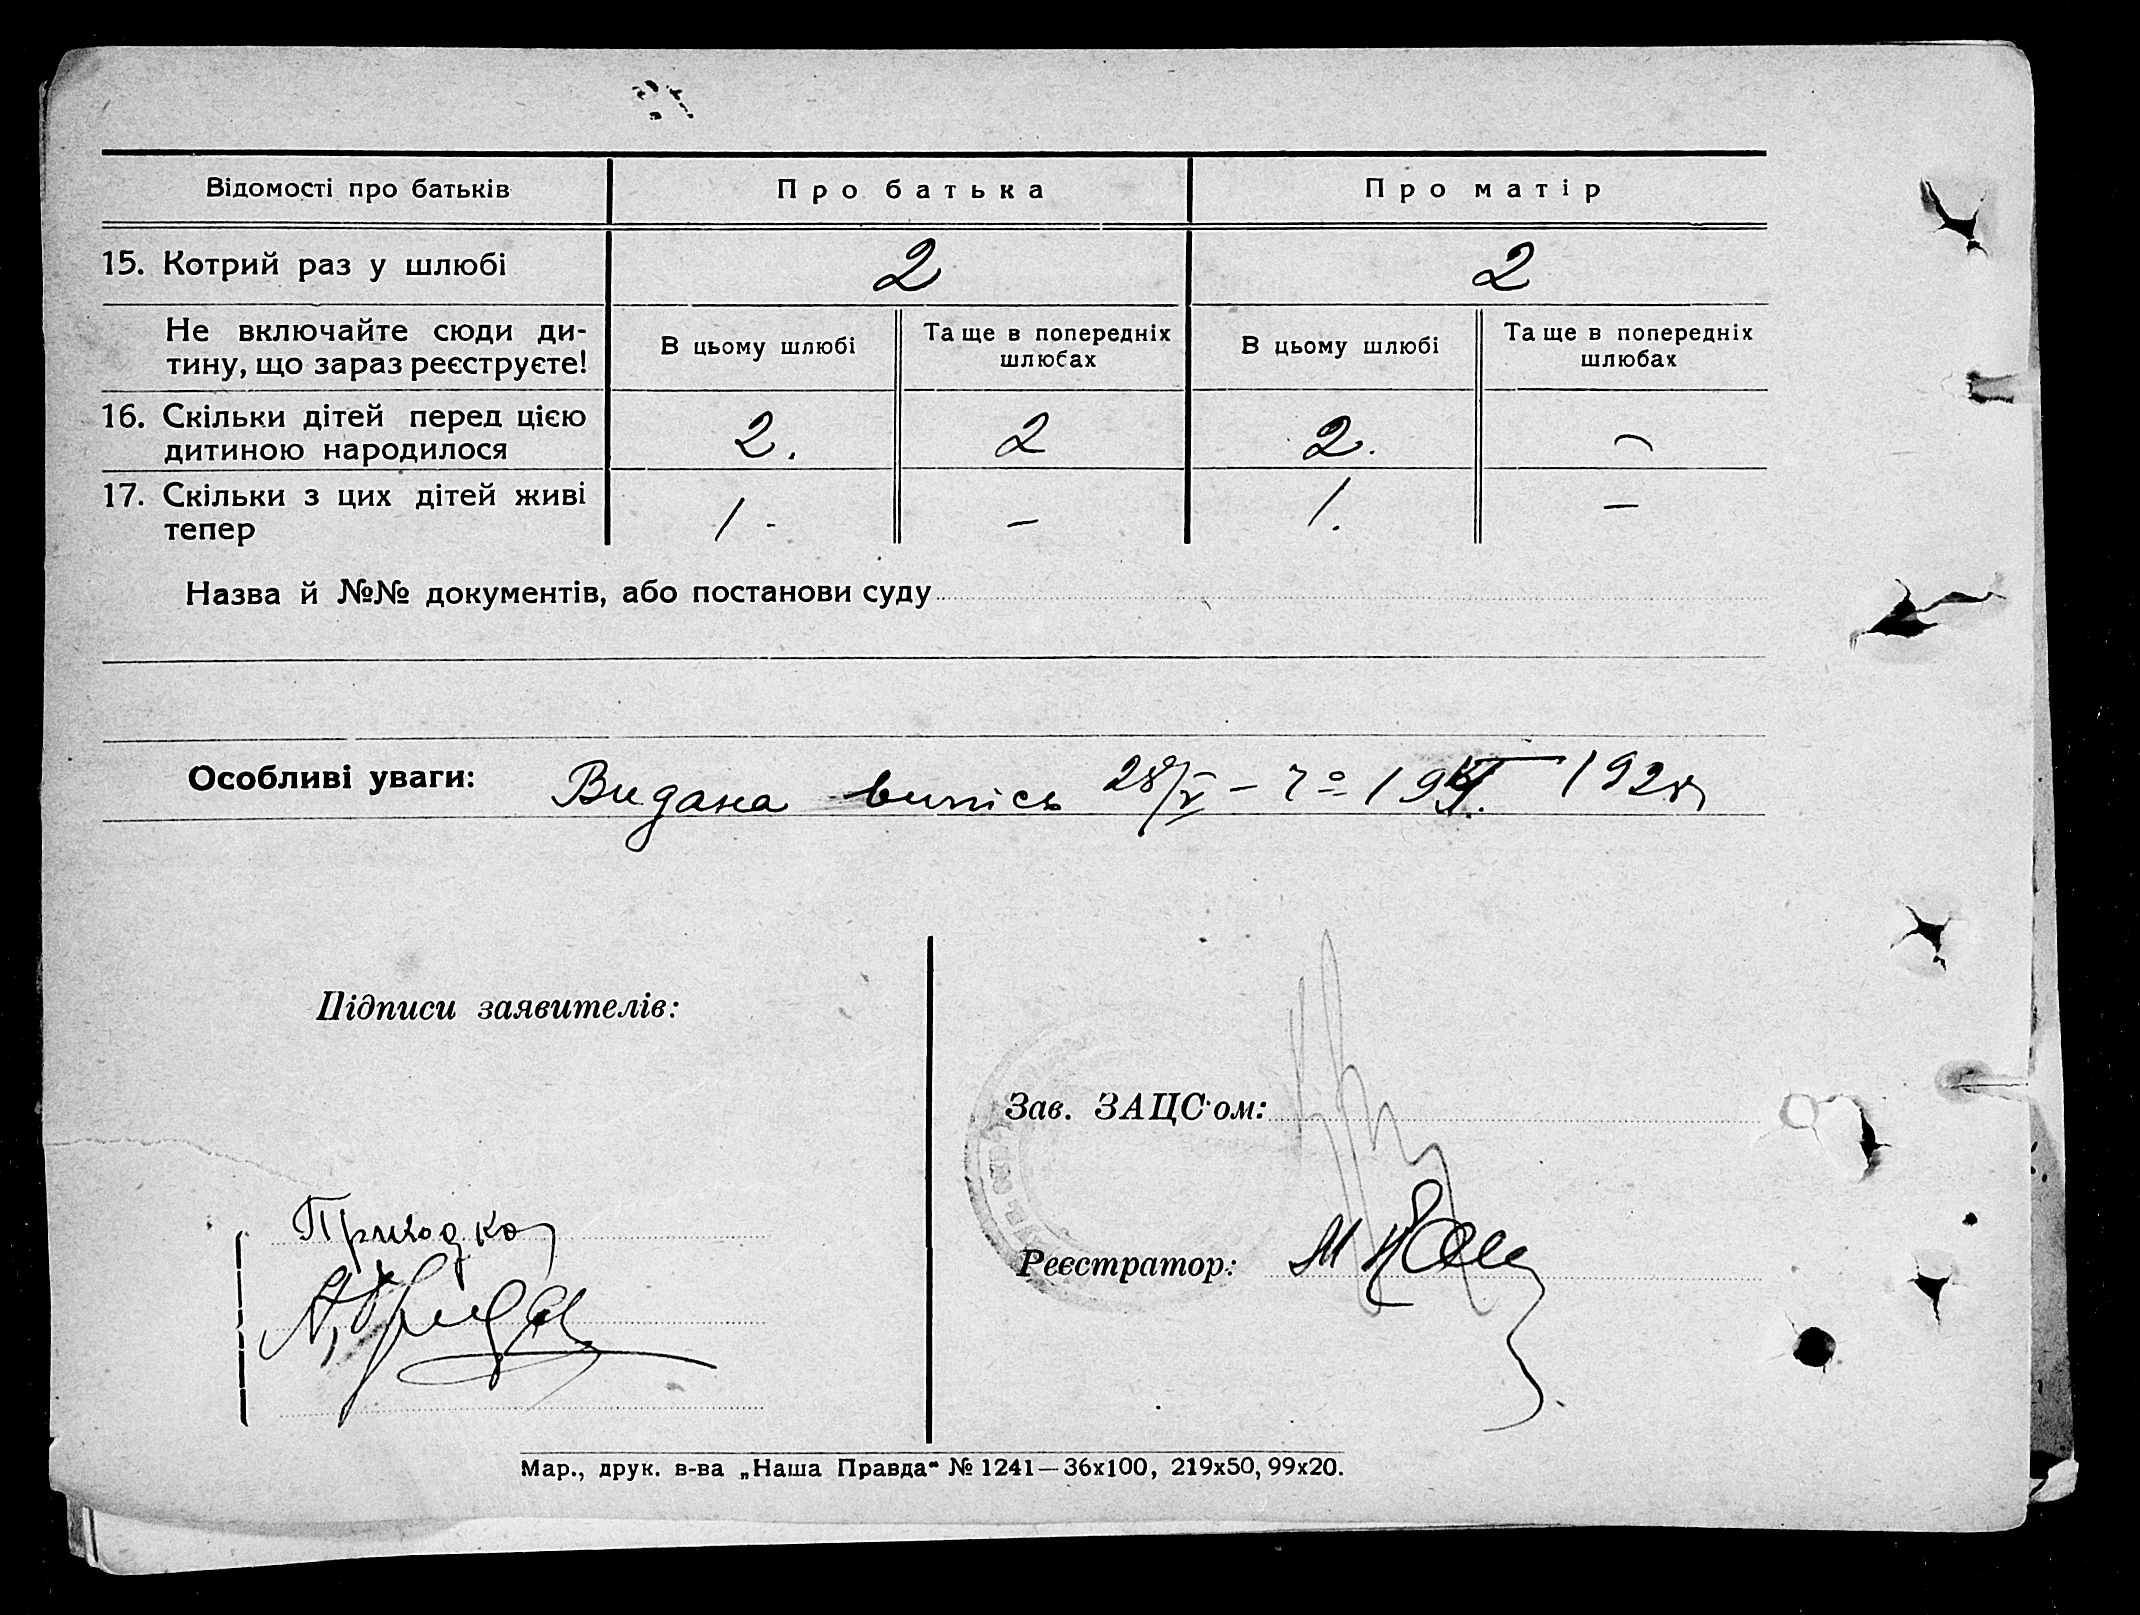 Відомості про батьків Про батька Про матір
15. Котрий раз у шлюбі 2 2
Не включайте сюди ди-
тину, що зараз реєструєте!
В цьому шлюбі
Та ще в попередніх
шлюбах
В цьому шлюбі
Та ще в попередніх
шлюбах
16. Скільки дітей перед цією
дитиною народилося
2. 2 2. –
17. Скільки з цих дітей живі
тепер
1 - – 1. –
Назва й №№ документів, або постанови суду
Особливі уваги: Видана випись 28/V – 1928
Підписи заявителів:
Приходко
Зав. ЗАЦС'ом:
Реєстратор:
Мар., друк. в-ва „Наша Правда" № 1241—36х100, 219х50, 99х20.